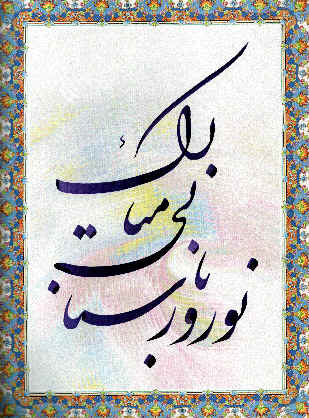 نوروز باستانی مبارک